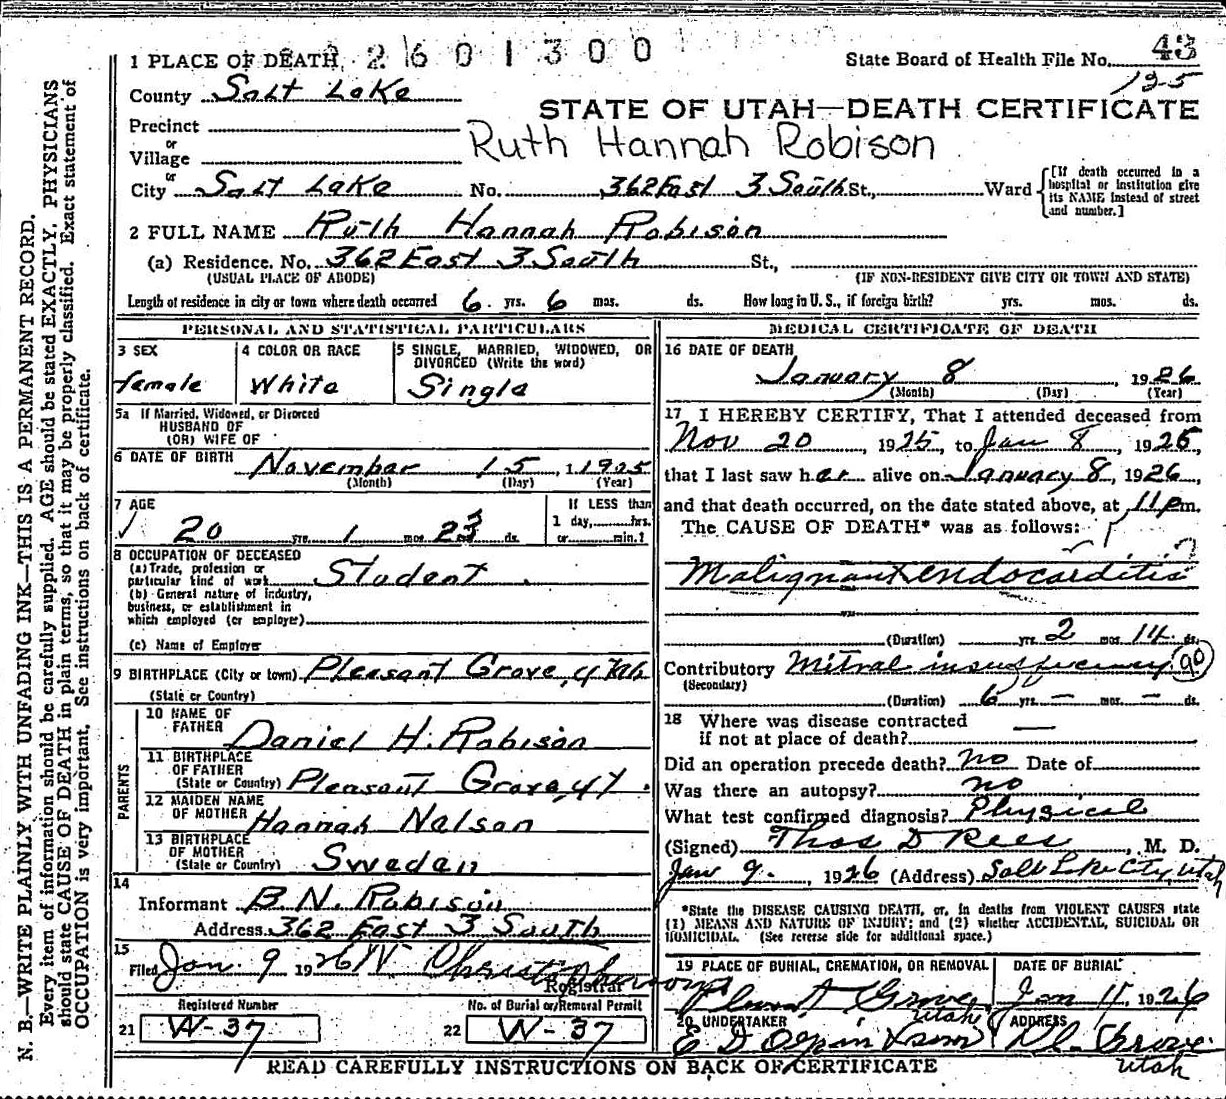 N. B.—WRITE PLAINLY WITH UNFADING INK—THIS IS A PERMANENT RECORD.
Every item of information should be carefully supplied. AGE should be stated EXACTLY. PHYSICIANS
should state CAUSE OF DEATH in plain terms, so that it may be properly classified. Exact statement of
OCCUPATION is very important. See instructions on back of certificate.
2601300
1 PLACE OF DEATH
State Board of Health File No. 43
125
County Salt Lake
STATE OF UTAH—DEATH CERTIFICATE
Precinct
or
Village
Ruth Hannah Robison
or
City Salt Lake No. 362 East 3 South St., Ward
[If death occurred in a
hospital or institution give
its NAME instead of street
and number.]
2 FULL NAME Ruth Hannah Robison
(a) Residence. No. 362 East 3 South St.,
(USUAL PLACE OF ABODE) (IF NON-RESIDENT GIVE CITY OR TOWN AND STATE)
Length of residence in city or town where death occurred 6 yrs. 6 mos. ds. How long in U. S., if foreign birth? yrs. mos. ds.
PERSONAL AND STATISTICAL PARTICULARS
3 SEX
female
4 COLOR OR RACE
White
5 SINGLE, MARRIED, WIDOWED, OR
DIVORCED (Write the word)
Single
5a If Married, Widowed, or Divorced
HUSBAND OF
(OR) WIFE OF
6 DATE OF BIRTH November 15, 1 1905
(Month) (Day) (Year)
7 AGE
20 yrs. 1 mos. 23 ds.
If LESS than
1 day, hrs.
or min.?
8 OCCUPATION OF DECEASED
(a) Trade, profession or
particular kind of work Student
(b) General nature of industry,
business, or establishment in
which employed (or employer)
(c) Name of Employer
9 BIRTHPLACE (City or town) Pleasant Grove, Utah
(State or Country)
PARENTS
10 NAME OF
FATHER
Daniel H. Robison
11 BIRTHPLACE
OF FATHER
(State or Country) Pleasant Grove, Ut.
12 MAIDEN NAME
OF MOTHER Hannah Nelson
13 BIRTHPLACE
OF MOTHER
(State or Country) Sweden
14
Informant B. N. Robison
Address 362 East 3 South
15
Filed Jan. 9 1926 W Christopherson
Registrar
Registered Number No. of Burial or Removal Permit
21 W-37 22 W-37
MEDICAL CERTIFICATE OF DEATH
16 DATE OF DEATH
January 8, 1926
(Month) (Day) (Year)
17 I HEREBY CERTIFY, That I attended deceased from
Nov 20 1925, to Jan 8, 1926,
that I last saw her alive on January 8, 1926,
and that death occurred, on the date stated above, at 11 p.m.
The CAUSE OF DEATH* was as follows:
Malignant endocarditis
(Duration) yrs. 2 mos. 14 ds.
Contributory Mitral insufficiency 90
(Secondary)
(Duration) 6 yrs. — mos. — ds.
18 Where was disease contracted
if not at place of death? —
Did an operation precede death? no Date of
Was there an autopsy? no
What test confirmed diagnosis? Physical
(Signed) Thos D Rees, M. D.
Jan 9, 1926 (Address) Salt Lake City, Utah
*State the DISEASE CAUSING DEATH, or, in deaths from VIOLENT CAUSES state
(1) MEANS AND NATURE OF INJURY; and (2) whether ACCIDENTAL, SUICIDAL OR
HOMICIDAL. (See reverse side for additional space.)
19 PLACE OF BURIAL, CREMATION, OR REMOVAL DATE OF BURIAL
Pleasant Grove Utah Jan 11, 1926
20 UNDERTAKER ADDRESS
E D Olpin & Sons Pl. Grove
Utah
READ CAREFULLY INSTRUCTIONS ON BACK OF CERTIFICATE